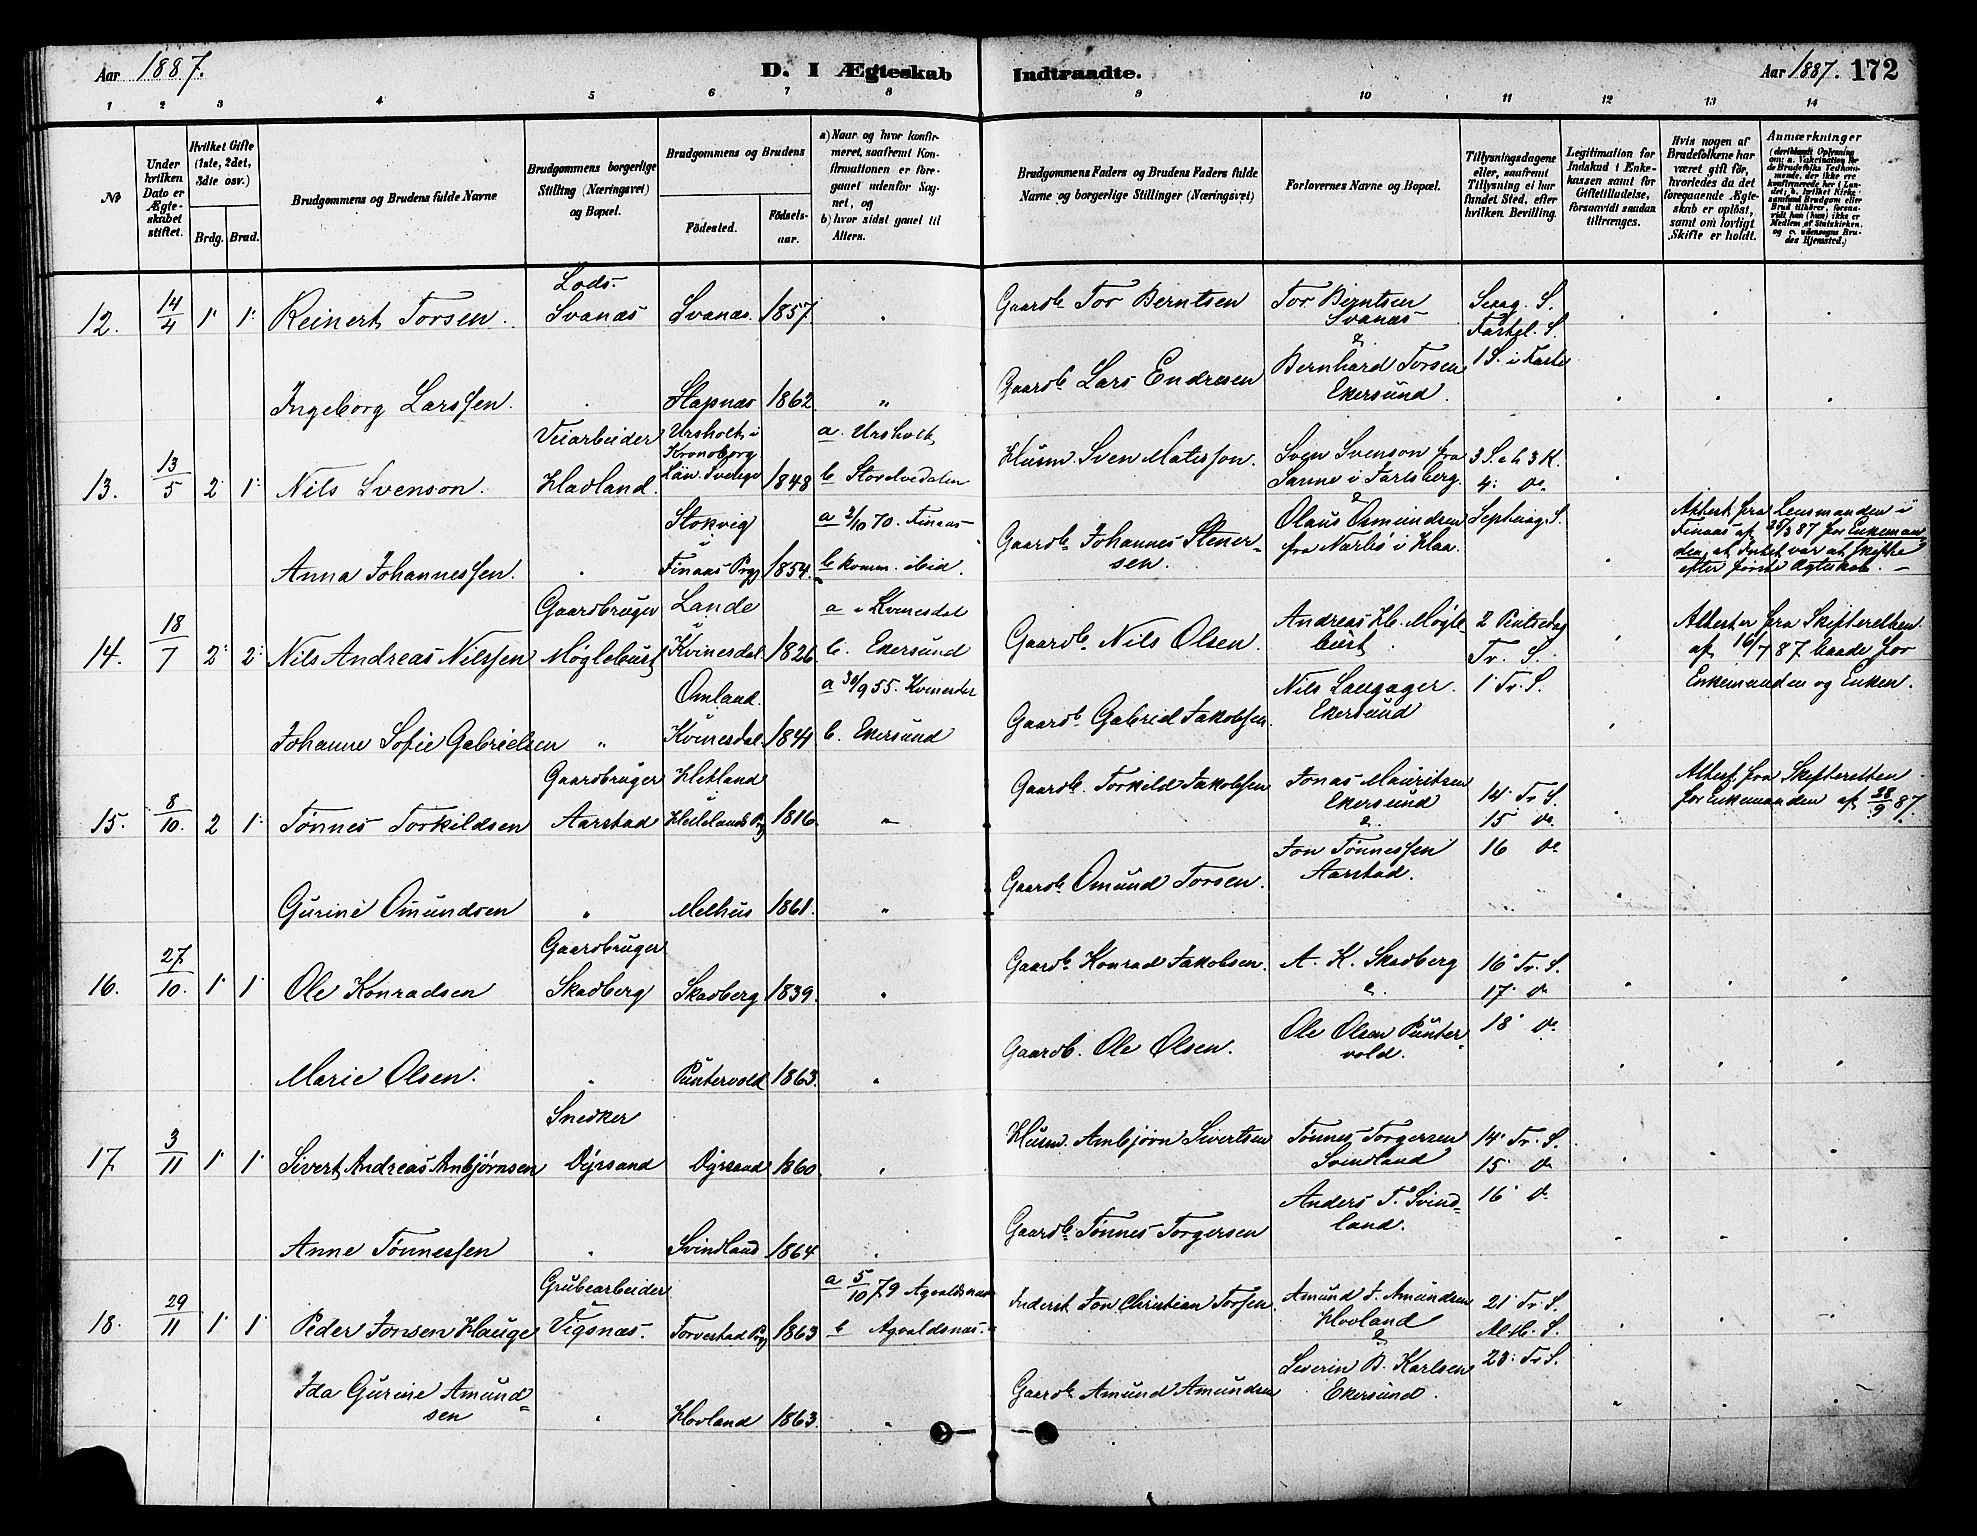 Aar 1887.
D. I Ægteskab
Indtraadte.
Aar 1887. 172
1 2 3 4 5 6 7 8 9 10 11 12 13 14
No
Under hvilken Dato er Ægteskabet stiftet.
Hvilket Gifte (1ste, 2det, 3die osv.)
Brdg. Brud.
Brudgommens og Brudens fulde Navne
Brudgommens borgerlige Stilling (Næringsvei) og Bopæl.
Brudgommens og Brudens
Födested.
Födselsaar.
a) Naar og hvor konfirmeret, saafremt Konfirmationen er foregaaet udenfor Sognet, og
b) hvor sidst gaaet til Alters.
Brudgommens Faders og Brudens Faders fulde Navne og borgerlige Stillinger (Næringsvei)
Forlovernes Navne og Bopæl.
Tillysningsdagene eller, saafremt Tillysning ei har fundet Sted, efter hvilken Bevilling.
Legitimation for Indskud i Enkekassen samt for Giftetilladelse, forsaavidt saadan tiltrænges.
Hvis nogen af Brudefolkene har været gift för, hvorledes da det foregaaende Ægteskab er oplöst, samt om lovligt Skifte er holdt.
Anmærkninger
12. 14/4 1 1 Reinert Torsen. Lods. Svanæs Svanæs. 1857. " Gaardb. Tor Berntsen Tor Berntsen Svanæs & Sexag. S. Fastel. S. 1 S. i Faste
Ingeborg Larssen. Slapnæs 1862 " Gaardb. Lars Endresen Bernhard Torsen Ekersund.
13. 13/5 2 1 Nils Svenson. Veiarbeider Havland. Ursholt i Kronoborg Län. Sverige 1848 a. Ursholt b Husm. Sven Matisson. Sven Svenson fra Sanne i Jarlsberg. & 3 S. e. h. 3 K. 4. do
Anna Johannessen. Stokvig i Finaas Prgj 1854. a 2/10 70. Finaas b komm. ibid. Gaardb. Johannes Stenersen. Olaus Osmundsen fra Nærbö i Klaa. Septuag. S. Attest fra Lensmanden i Finaas af 25/3 87 for Enkemanden, at Intet var at skifte efter förste Ægteskab. —
14. 18/7 2 2 Nils Andreas Nilssen Gaardbruger Møglebust Lande i Kvinesdal 1826 a i Kvinesdal b. Ekersund Gaardb. Nils Olsen. Andreas Møglebust. 2 Pintsedag Tr. S. 1 Tr. S. Attester fra Skifteretten af 16/7 87 baade for Enkemanden og Enken.
Johanne Sofie Gabrielsen " Omland. Kvinesdal 1841 a 30/9 55. Kvinesdal b. Ekersund Gaardb. Gabriel Jakobsen. Nils Laugager. Ekersund
15. 8/10. 2 1 Tönnes Torkildsen Gaardbruger Aarstad Hetland Hellelands Prgj 1816 " Gaardb. Torkild Jakobsen Jonas Mauritsen Ekersund & 14. Tr. S. 15 do. 16 do Attest fra Skifteretten for Enkemanden af 28/9 87.
Gurine Omundsen " Melhus 1861. " Gaardb. Omund Torsen. Jon Tönnessen Aarstad.
16. 27/10. 1 1 Ole Konradsen Gaardbruger Skadberg Skadberg 1839. " Gaardb. Konrad Jakobsen. A. K. Skadberg & 16 Tr. S. 17 do 18 do
Marie Olsen. " Puntervold 1863. " Gaardb. Ole Olsen. Ole Olsen Puntervold.
17. 3/11 1 1 Sivert Andreas Anbjørnsen Snedker Dyrsand Dyrsand 1860. " Husm. Anbjørn Sivertsen Tönnes Torgersen Svindland 14. Tr. S. 15 do 16 do
Anne Tönnessen " Svindland 1864 " Gaardb. Tönnes Torgersen Anders T. Svindland.
18. 29/11 1 1 Peder Jonsen Hauge Grubearbeider Vigsnæs. Torvestad Prgj 1863 a 5/10 79 Agvaldsnæs b Agvaldsnæs. Inderst Jon Christian Torsen. Amund J. Amundsen Hovland & 21 Tr. S. Al. H. S. 23. Tr. S.
Ida Gurine Amundsen " Hovland 1863. " Gaardb. Amund Amundsen Severin B. Karlsen Ekersund.